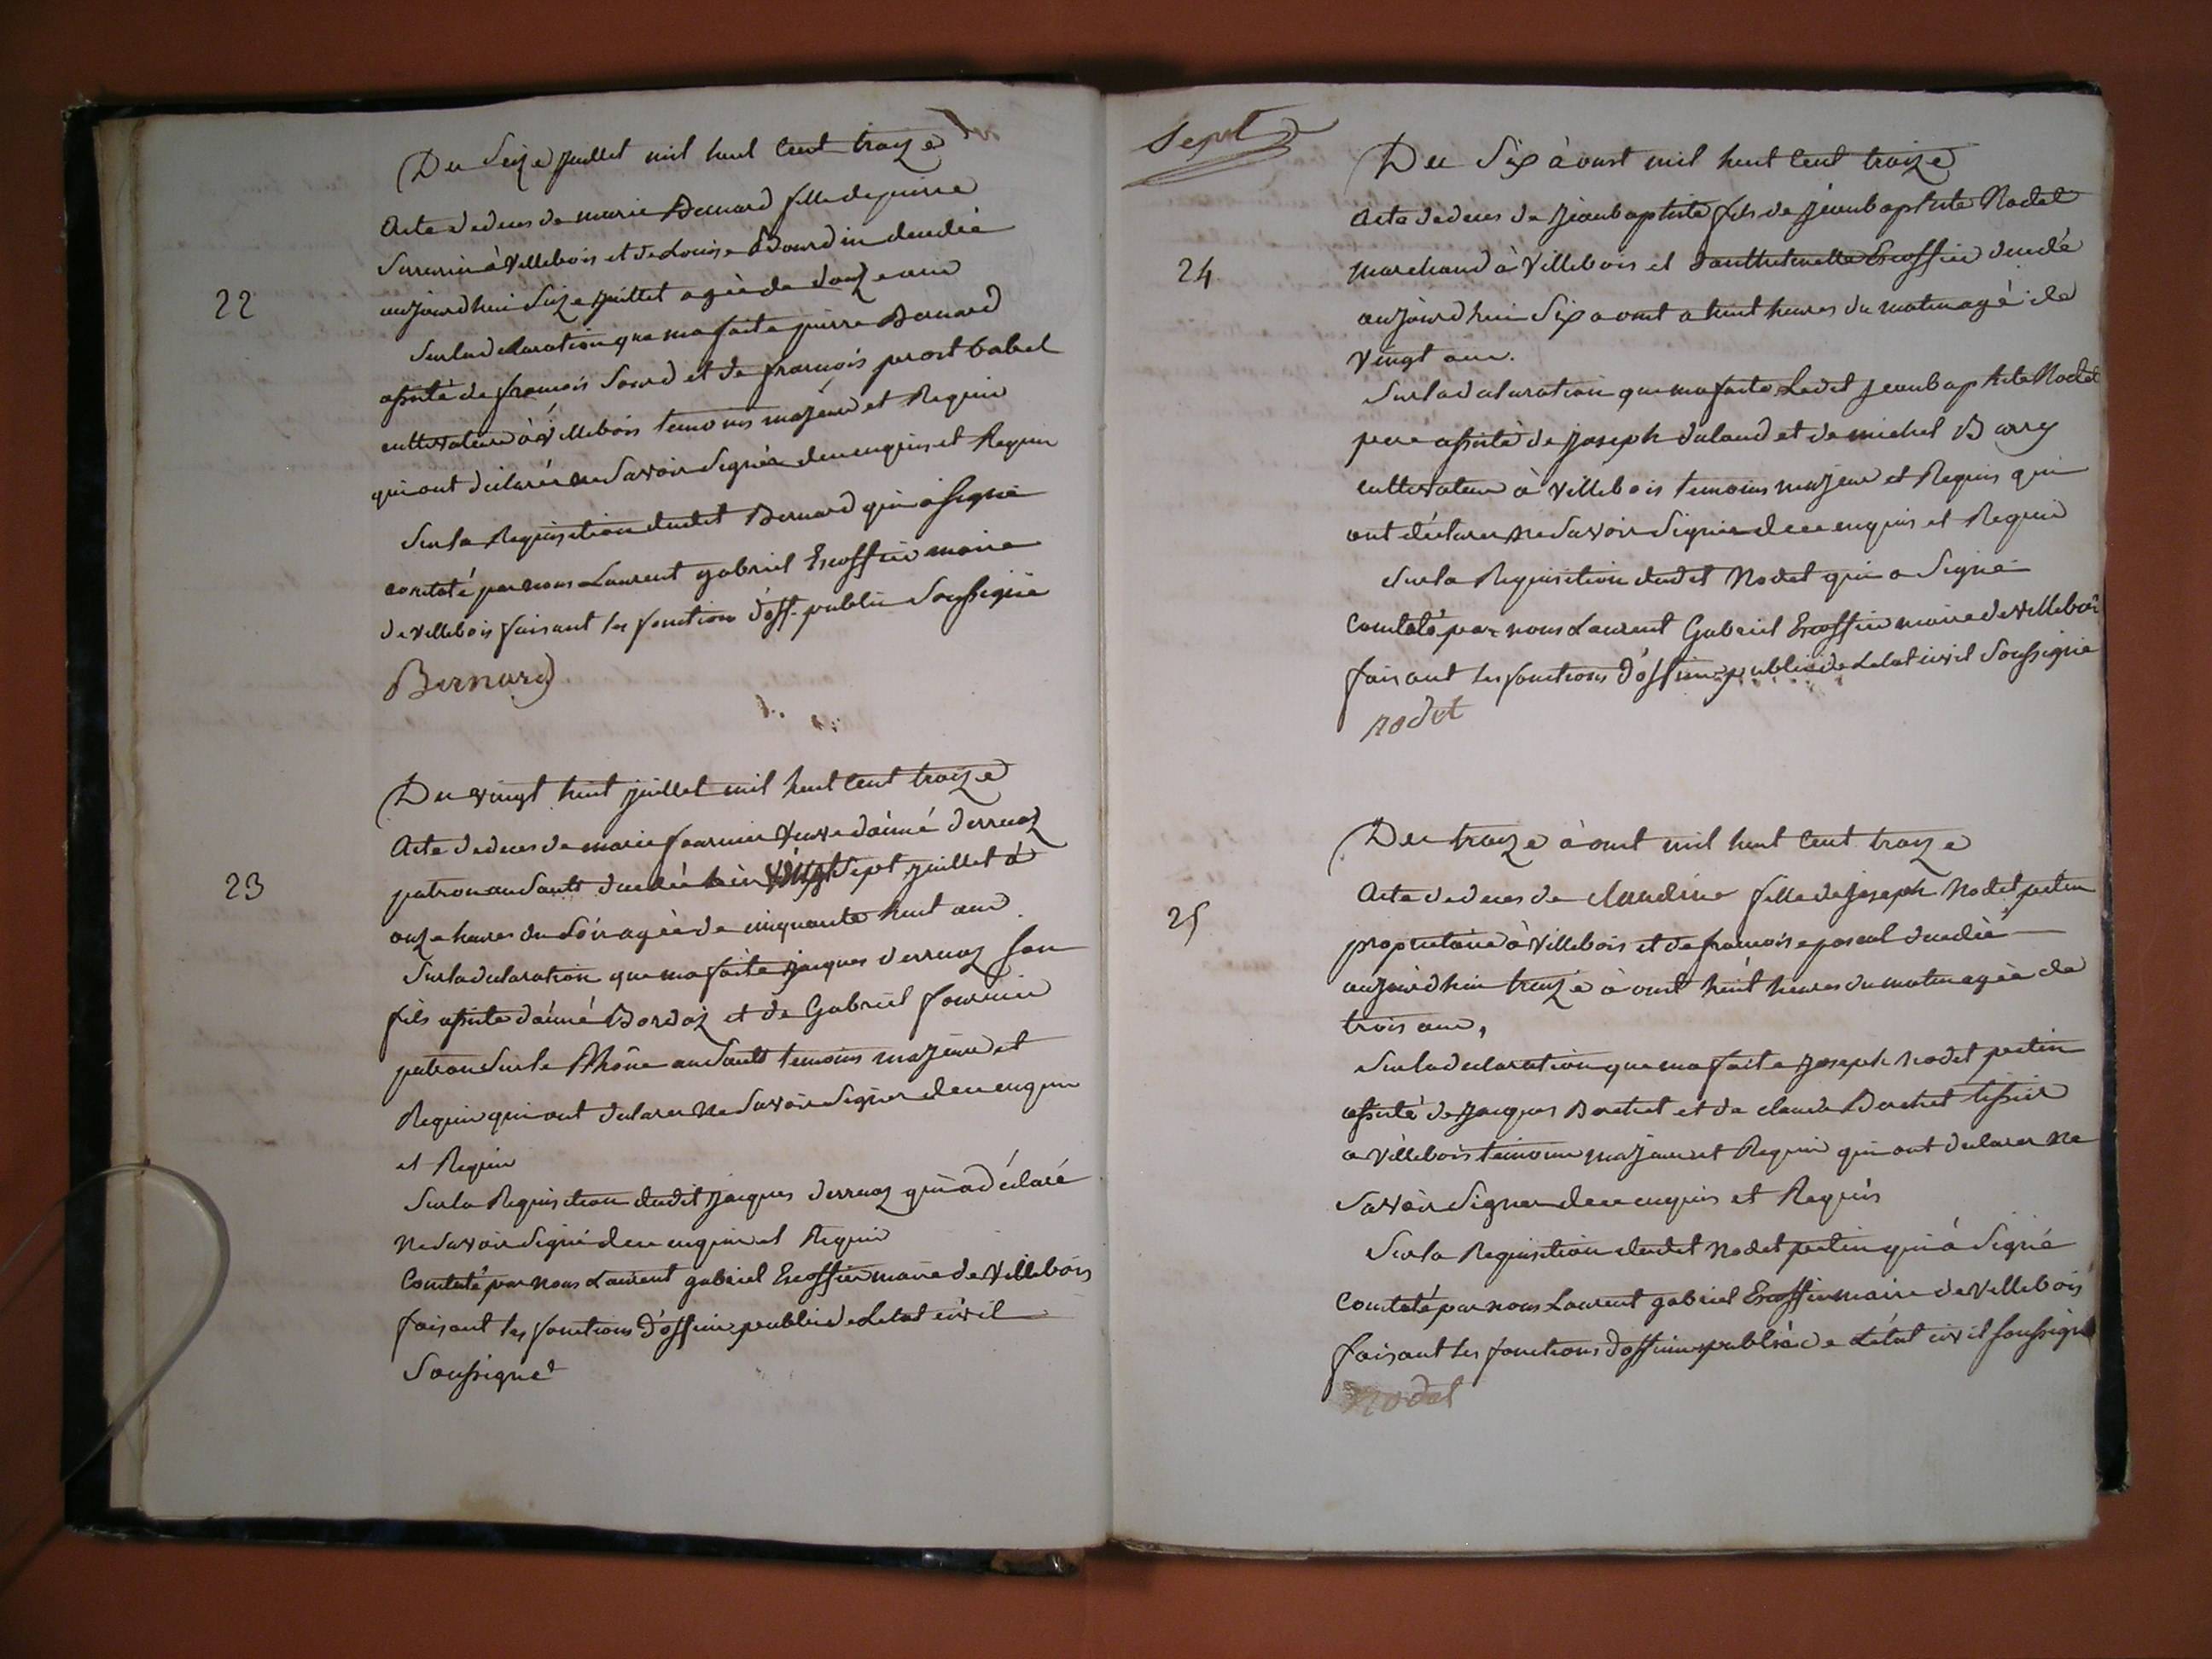 Du Seize juillet mil huit Cent treize
22
Acte de deces de marie Bernard fille de pierre
Serrurier à Villebois et de Louise Bourdin decedée
aujourdhui Seize juillet agée de douze ans
Sur la declaration que ma faite pierre Bernard
assisté de francois Sourd et de francois prost babel
cultivateurs à Villebois temoins majeurs et Requis
qui ont déclarés ne Savoir Signer de ce enquis et Requis
Sur la Requisition dudit Bernard qui a Signé
constaté par nous Laurent gabriel Escoffier maire
de villebois faisant les fonctions d'off. public Soussigné
Bernard
Du vingt huit juillet mil huit Cent treize
23
Acte de deces de marie fournier Veuve daimé derruaz
patron au Sault decedée hier Vingt Sept juillet à
onze heures du Soir agée de cinquante huit ans
Sur la declaration que ma faite jacques derruaz Son
fils assisté daimé Bordaz et de Gabriel fournier
patron Sur le Rhône au Sault temoins majeurs et
Requis qui ont declarer ne Savoir Signer de ce enquis
et Requis
Sur la Requisition dudit jacques derruaz qui a déclaré
ne Savoir Signé de ce enquis et Requis
Constaté par nous Laurent gabriel Escoffier maire de Villebois
faisant les fonctions d'officier public de Letat civil
Soussigné
Sept
Du Six àoust mil huit Cent treize
24
Acte de deces de jean baptiste fils de jean baptiste Nodet
marchand à Villebois et Escoffier decedé
aujourdhui Six aout a huit heures du matin agé de
Vingt ans.
Sur la declaration que ma faite Ledit jean baptiste Nodet
pere assisté de joseph dulaud et de michel Barry
cultivateur à Villebois temoins majeur et Requis qui
ont déclarer ne Savoir Signer de ce enquis et Requis
Sur la Requisition dudit Nodet qui a Signé
Constaté par nous Laurent Gabriel Escoffier maire de Villebois
faisant les fonctions d'officier public de Letat civil Soussigné
nodet
Du treize àout mil huit Cent treize
25
Acte de deces de claudine fille de joseph Nodet pertin
proprietaire à Villebois et de francoise pascal decedée
aujourdhui treize àout huit heures du matin agée de
trois ans,
Sur la declaration que ma faite joseph nodet pertin
assisté de jacques Bochet et de claude Bochet tissier
a Villebois temoins majeur et Requis qui ont declarer ne
Savoir Signer de ce enquis et Requis
Sur la Requisition dudit Nodet pertin qui à Signé
Constaté par nous Laurent gabriel Escoffier maire de Villebois
faisant les fonctions d'officier public de Létat civil Soussigné
Nodet